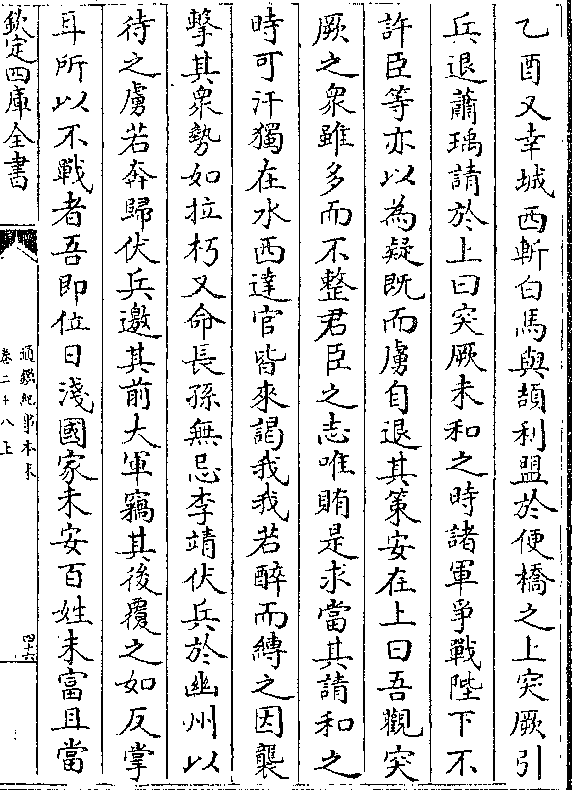 乙酉又幸城西斬白馬與頡利盟於便橋之上突厥引
兵退蕭瑀請於上曰突厥未和之時諸軍爭戰陛下不
許臣等亦以為疑既而虜自退其策安在上曰吾觀突
厥之衆雖多而不整君臣之志唯賄是求當其請和之
時可汗獨在水西達官皆來謁我我若醉而縛之因襲
擊其衆勢如拉朽又命長孫無忌李靖伏兵於幽州以
待之虜若奔歸伏兵邀其前大軍竊其後覆之如反掌
耳所以不戰者吾即位日淺國家未安百姓未富且當
欽定四庫全書
通鑑紀事本末
卷二十八上
四十六